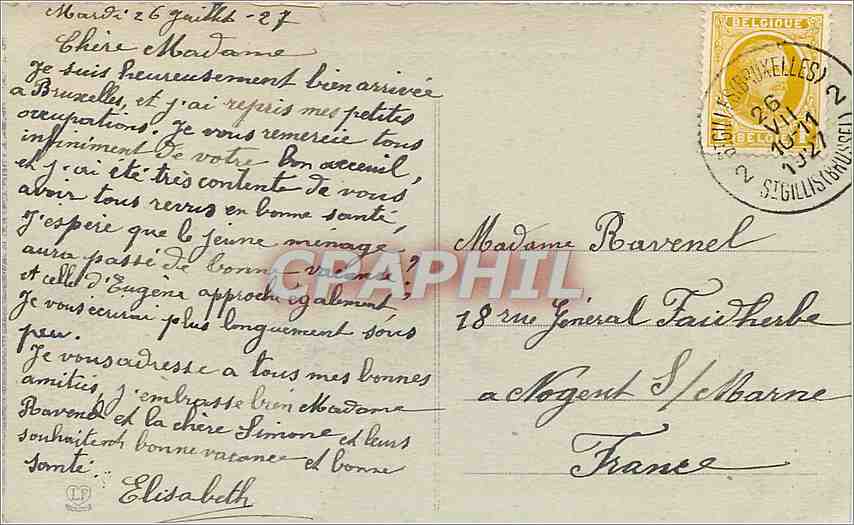 Mardi 26 Juillet - 27
Chère Madame
Je suis heureusement bien arrivée
a Bruxelles, et j'ai repris mes petites
occupations. Je vous remercie tous
infiniment de votre bon acceuil,
et j'ai été très contente de vous
avoir tous revus en bonne santé,
J'espère que le jeune ménage
aura passé de bonne vacance?
et celle d'Eugene approche également?
Je vous écrirai plus longuement sous
peu.
Je vous adresse a tous mes bonnes
amitiés, j'embrasse bien Madame
Ravenel et la chère Simone et leurs
souhaitent bonne vacance et bonne
santé.
Elisabeth
LP
BELGIQUE
BELGIË
ST GILLES (BRUXELLES)
2
26
VII
10-11
1927
2
ST GILLIS (BRUSSEL)
CPAPHIL
.COM
Madame Ravenel
18 rue Général Faidherbe
a Nogent S/Marne
France